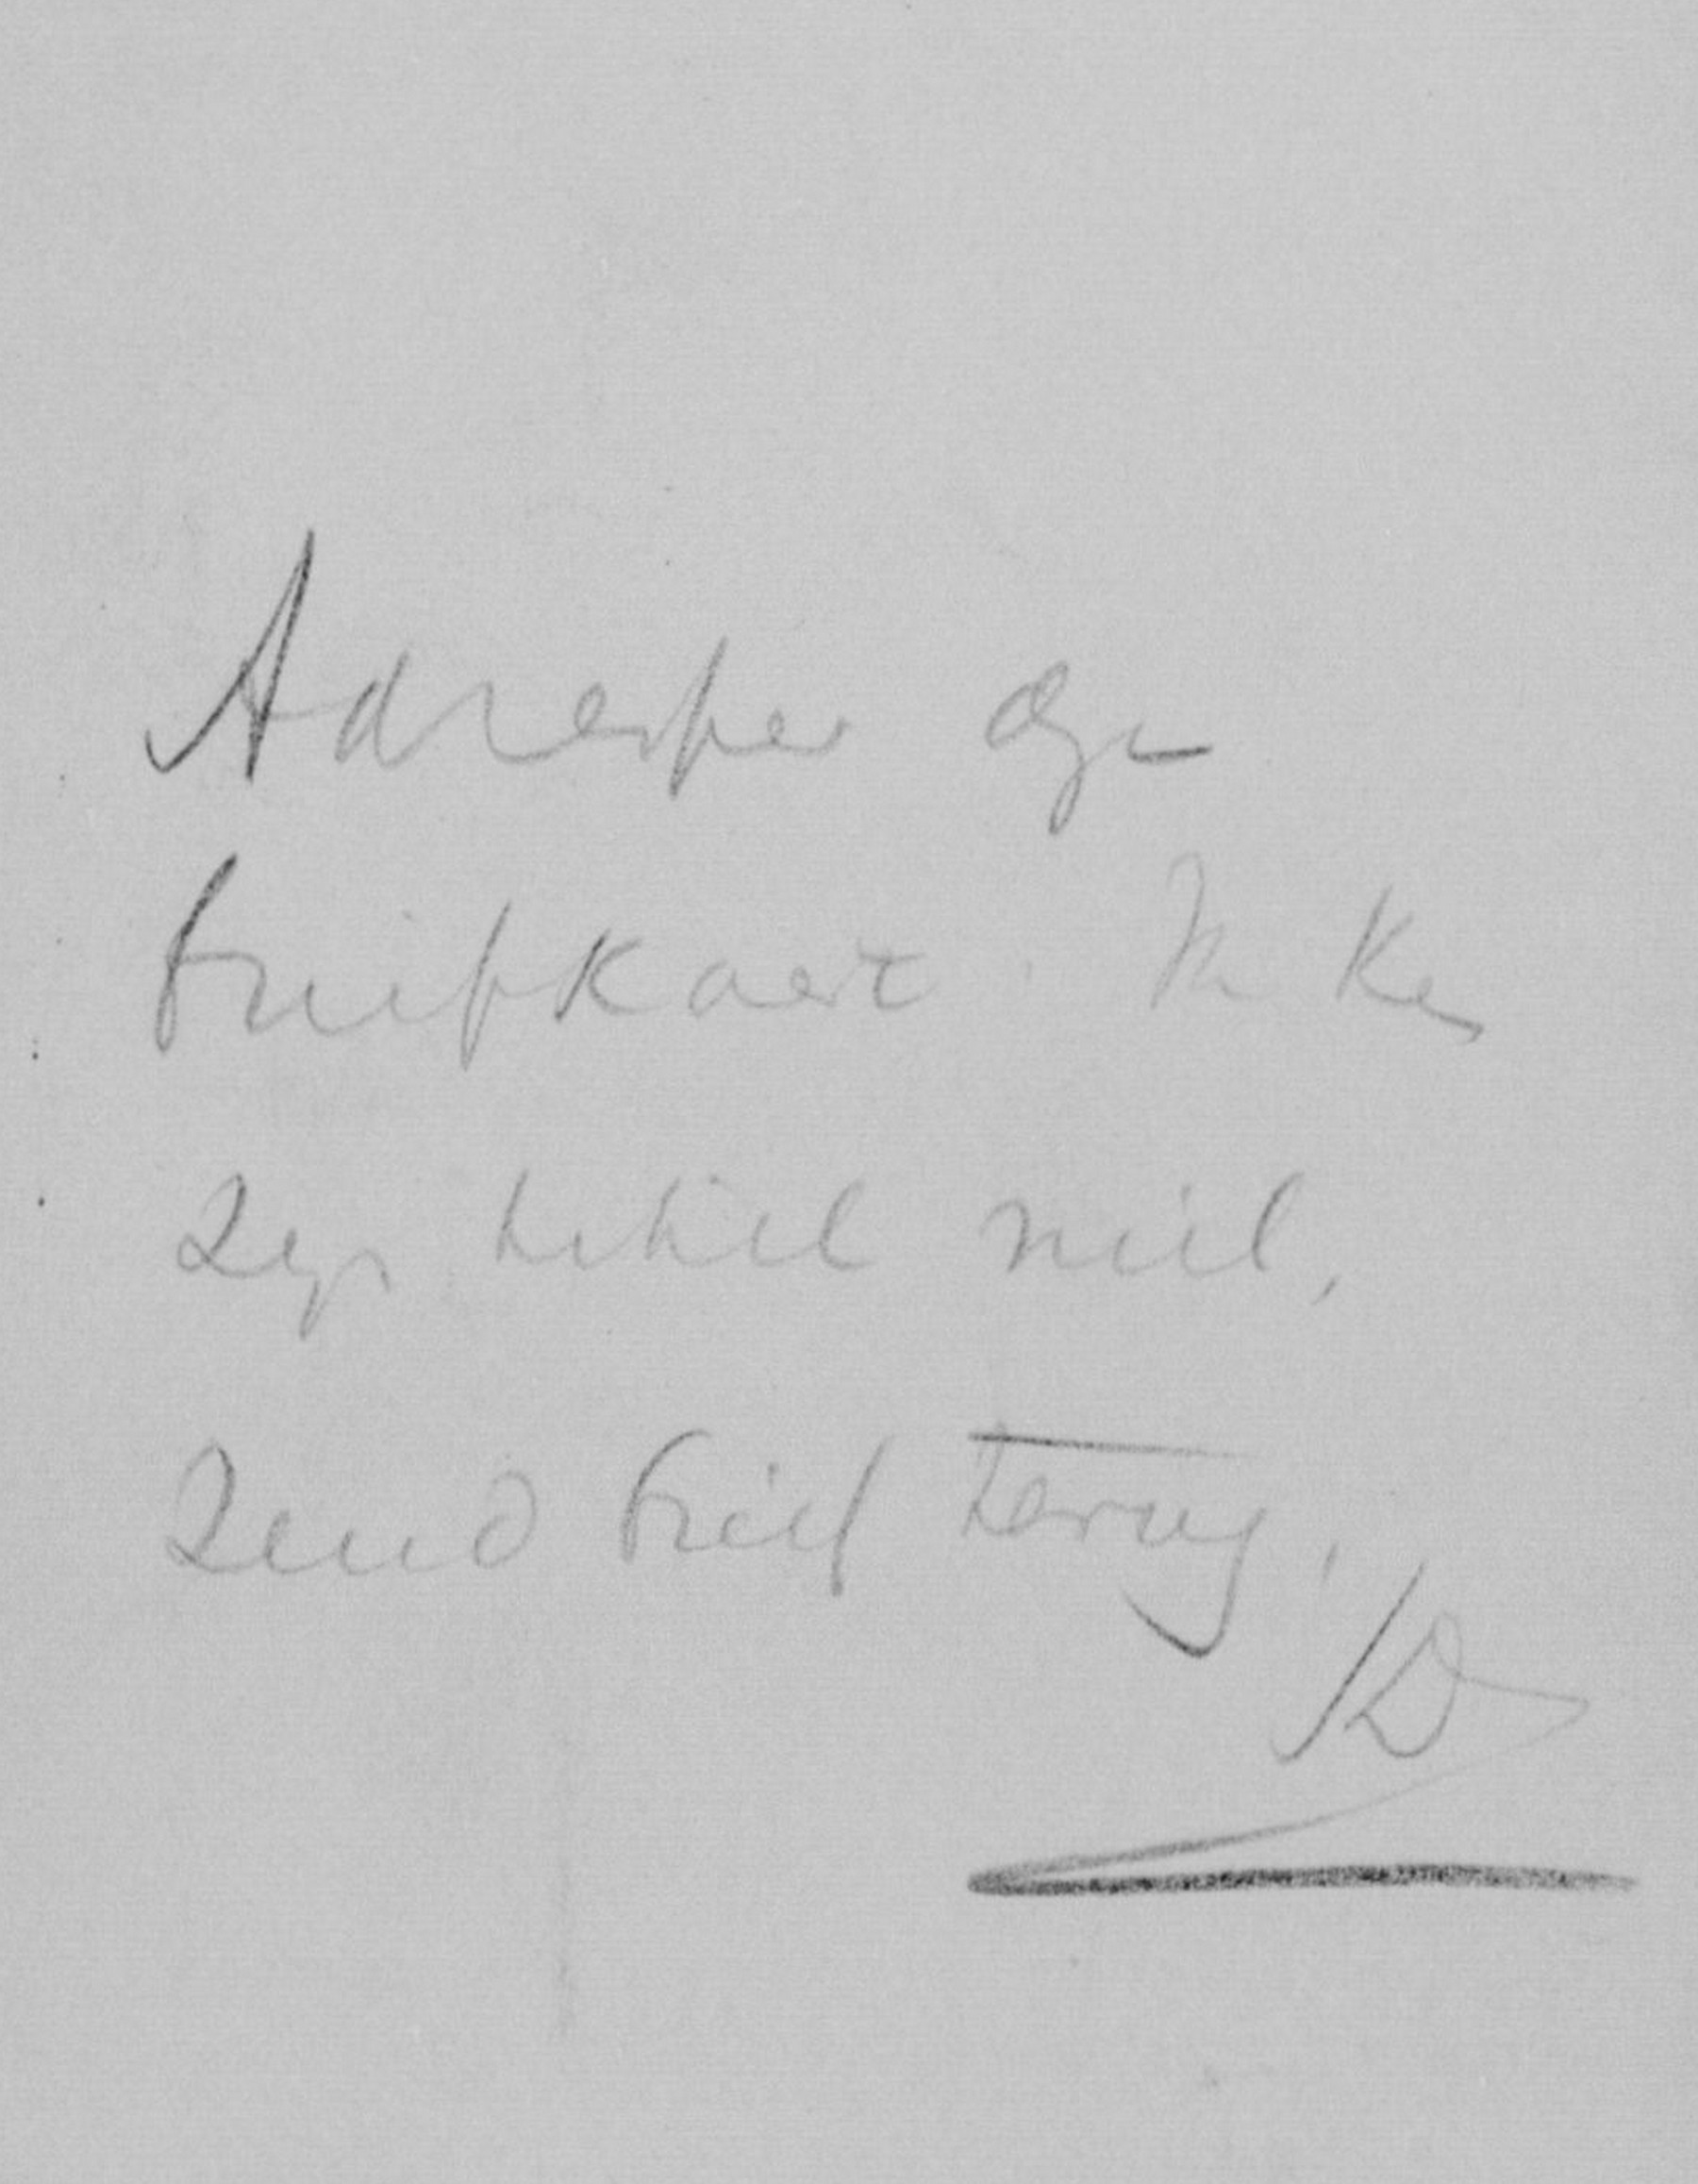 Adresser
briefkaart. Ik ken
zijn titel niet.
Zend brief terug.